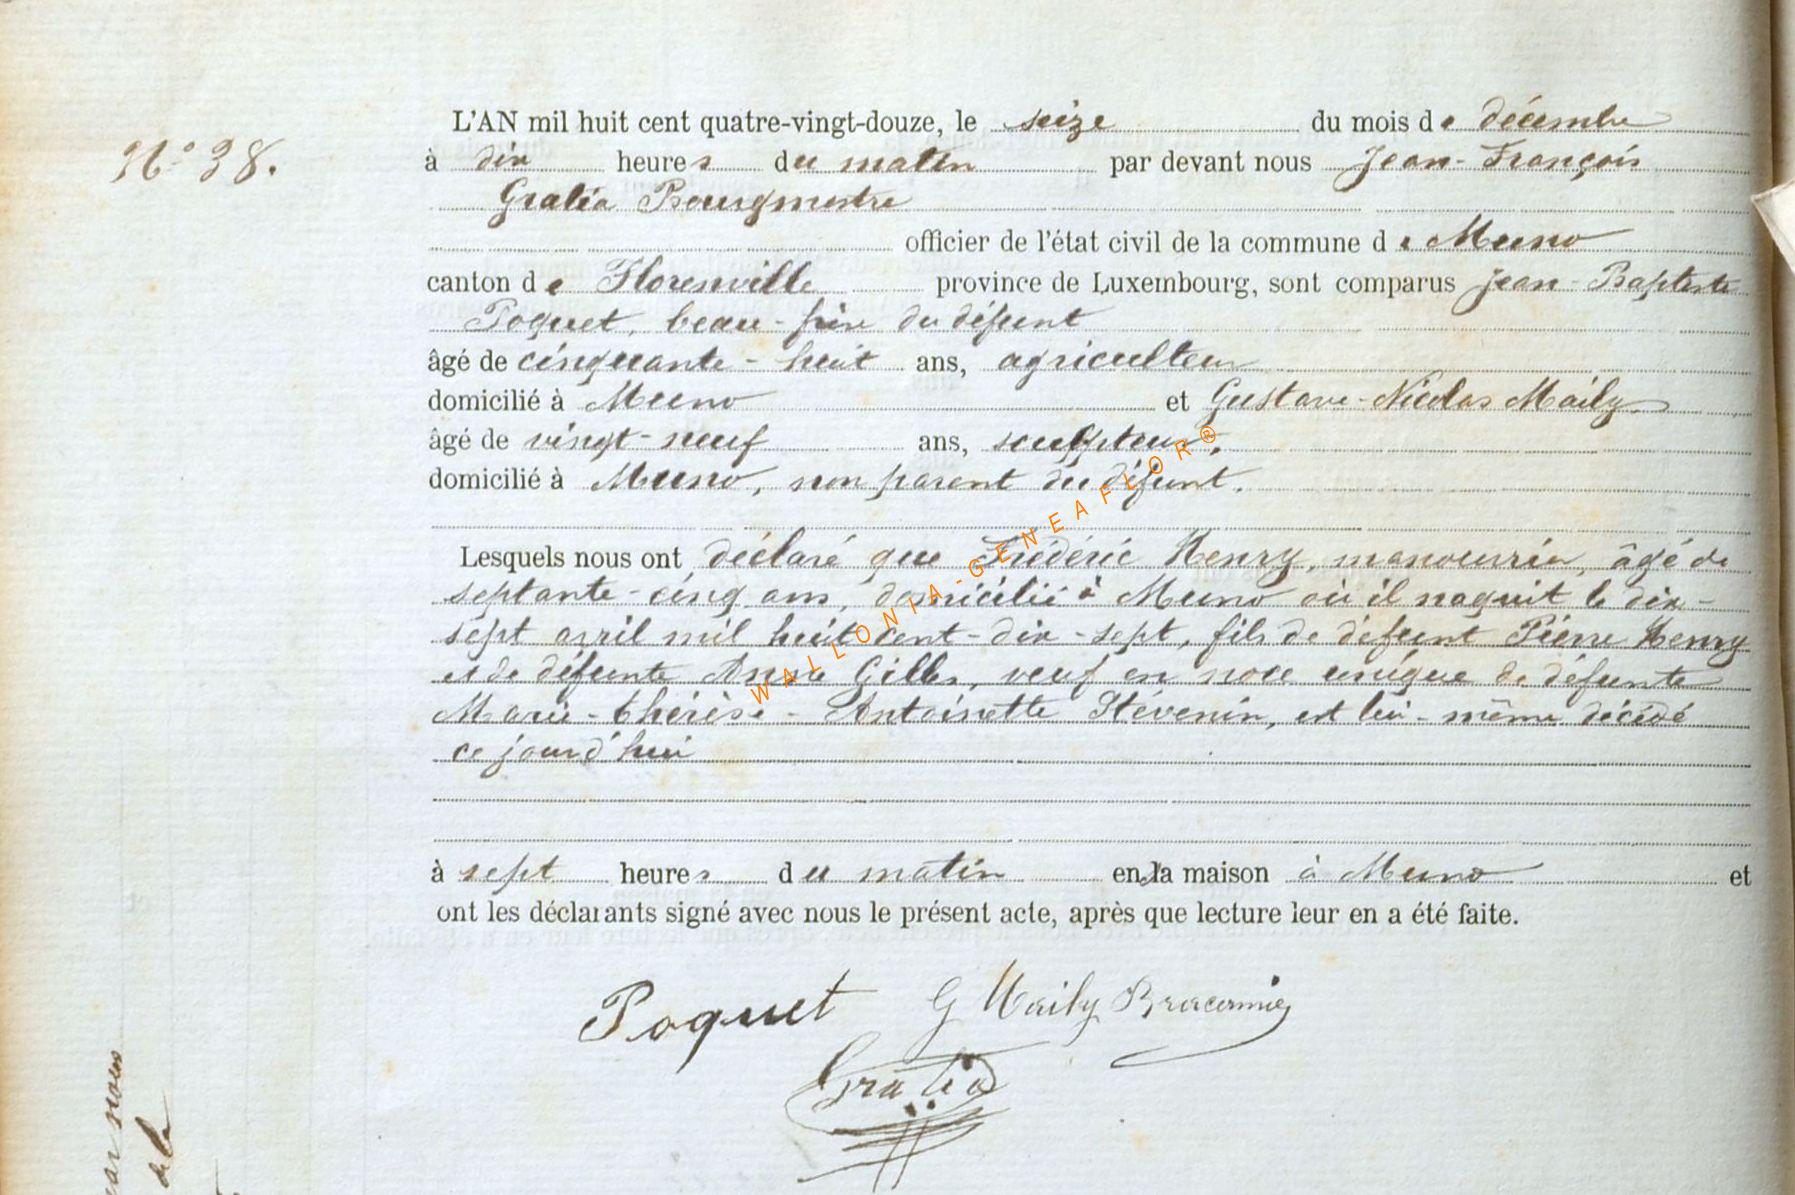 N° 38.
L'AN mil huit cent quatre-vingt-douze, le seize du mois de décembre
à dix heures du matin par devant nous Jean-François
Gratia Bourgmestre
officier de l'état civil de la commune de Muno
canton de Florenville province de Luxembourg, sont comparus Jean-Baptiste
Poquet, beau-frère du défunt
âgé de cinquante-huit ans, agriculteur
domicilié à Muno et Gustave-Nicolas Maily
âgé de vingt-neuf ans, sculpteur,
domicilié à Muno, non parent du défunt.
Lesquels nous ont déclaré que Frédéric Henry, manouvrier, âgé de
septante-cinq ans, domicilié à Muno où il naquit le dix-
sept avril mil huit cent-dix-sept, fils de défunt Pierre Henry
et de défunte Anne Gilles, veuf en noce unique de défunte
Marie-Thérèse-Antoinette Stévenin, est lui-même décédé
ce jourd'hui
à sept heures du matin en sa maison à Muno et
ont les déclarants signé avec nous le présent acte, après que lecture leur en a été faite.
Poquet G Maily
Gratia
WALLONIA-GENEAFLOR®
par nous
de la